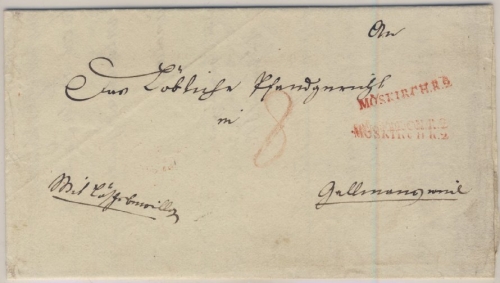 An
Das Löbliche Pfandgericht
MÖSKIRCH.R.2.
in
8
MÖSKIRCH.R.2.
Mit
Gallmansweil